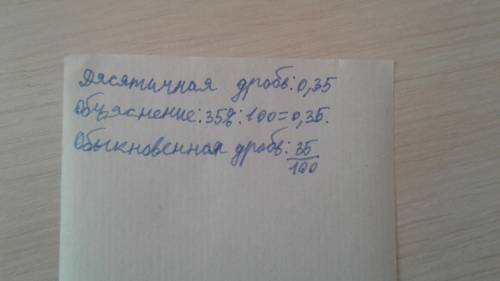 Дясятичная дробь: 0,35
Обьяснение: 35%:100=0,35.
Обыкновенная дробь: 35/100